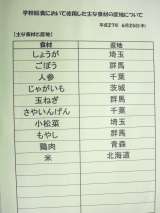 学校給食において使用した主な食材の産地について
平成27年 6月25日(木)
【主な食材と産地】
食材 産地
しょうが 埼玉
ごぼう 群馬
人参 千葉
じゃがいも 茨城
玉ねぎ 群馬
さやいんげん 千葉
小松菜 埼玉
もやし 群馬
鶏肉 青森
米 北海道